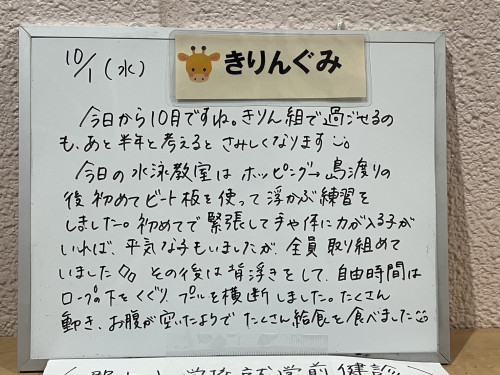 10/1(水)
きりんぐみ
今日から10月ですね。きりん組で過ごせるの
も、あと半年と考えるとさみしくなります
今日の水泳教室は ホッピング→島渡りの
後 初めてビート板を使って浮かぶ練習を
しました。初めてで緊張して手や体に力が入る子が
いれば、平気な子もいましたが、全員取り組めて
いました その後は背浮きをして、自由時間は
ロープの下をくぐり、プールを横断しました。たくさん
動き、お腹が空いたようで たくさん給食を食べました
就学前健診